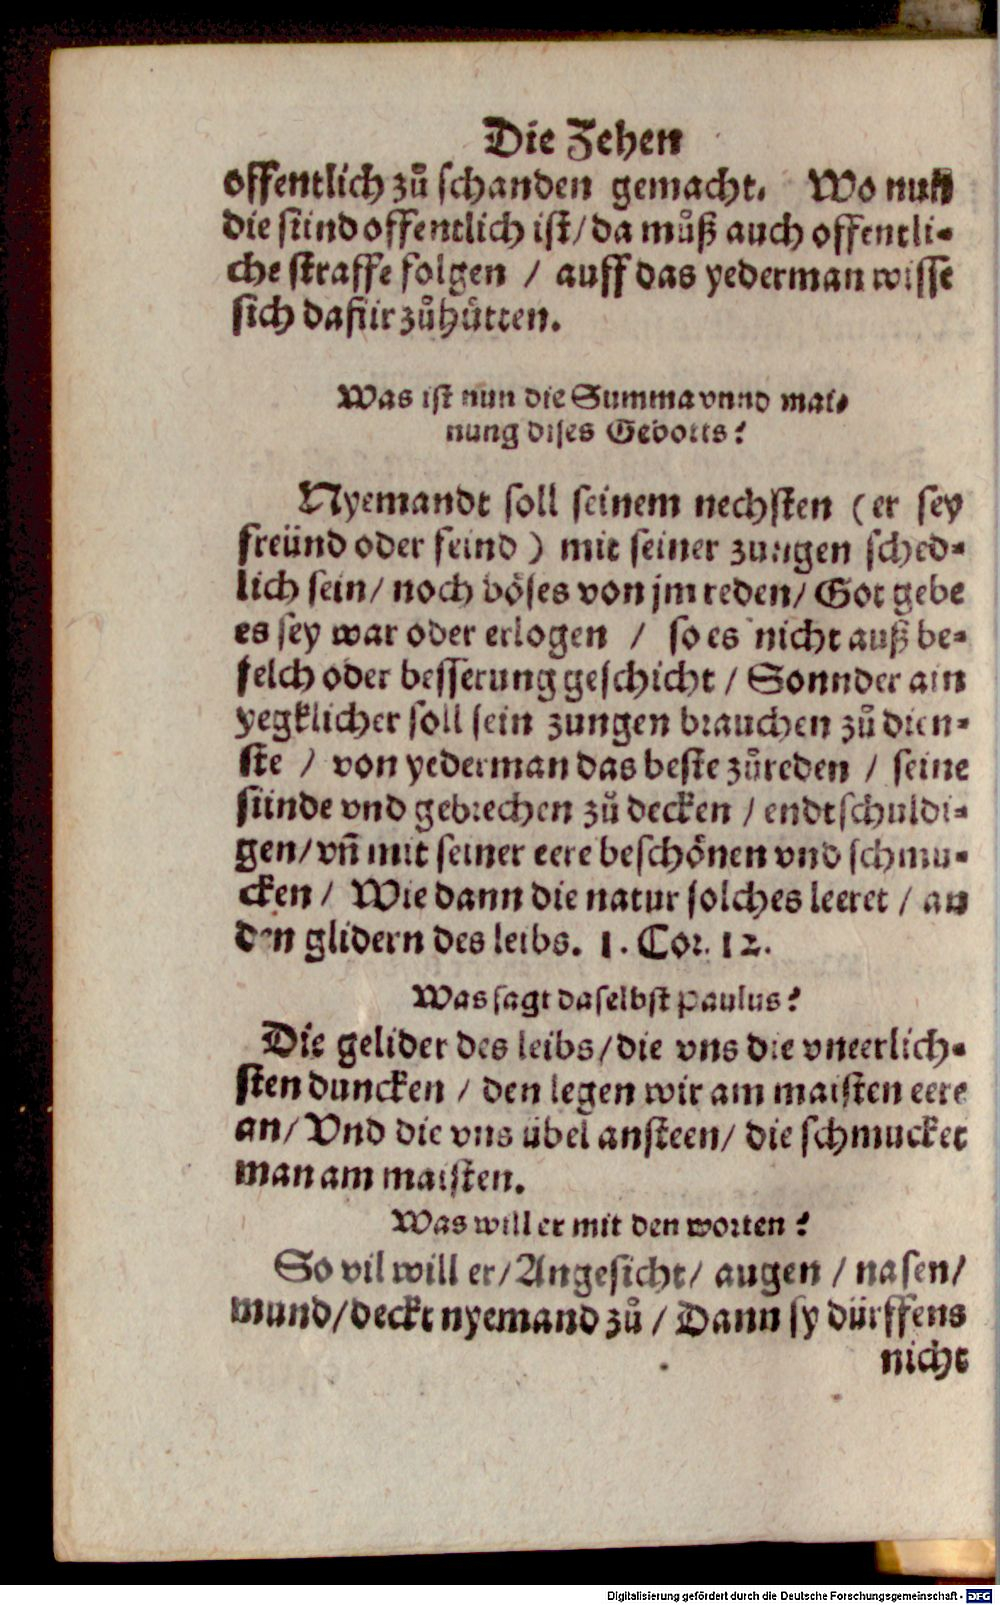 Die Zehen
offentlich zů schanden gemacht. Wo nun
die sünd offentlich ist / da můß auch offentli-
che straffe folgen / auff das yederman wisse
sich dafür zůhütten.
Was ist nun die Summa vnnd mai-
nung dises Gebotts?
Nyemandt soll seinem nechsten (er sey
freünd oder feind) mit seiner zungen sched-
lich sein / noch böses von jm reden / Got gebe
es sey war oder erlogen / so es nicht auß be-
felch oder besserung geschicht / Sonnder ain
yegklicher soll sein zungen brauchen zů dien-
ste / von yederman das beste zůreden / seine
sünde vnd gebrechen zů decken / endtschuldi-
gen / vñ mit seiner eere beschönen vnd schmu-
cken / Wie dann die natur solches leeret / an
den glidern des leibs. 1. Cor. 12.
Was sagt daselbst Paulus?
Die gelider des leibs / die vns die vneerlich-
sten duncken / den legen wir am maisten eere
an / Vnd die vns übel ansteen / die schmucket
man am maisten.
Was will er mit den worten?
So vil will er / Angesicht / augen / nasen /
mund / deckt nyemand zů / Dann sy dürffens
nicht
Digitalisierung gefördert durch die Deutsche Forschungsgemeinschaft - DFG